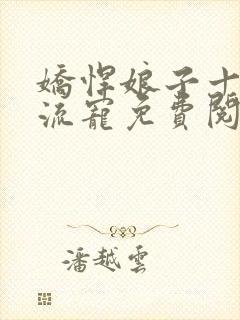 嬌悍娘子十
流寵免費閱
潘越雲